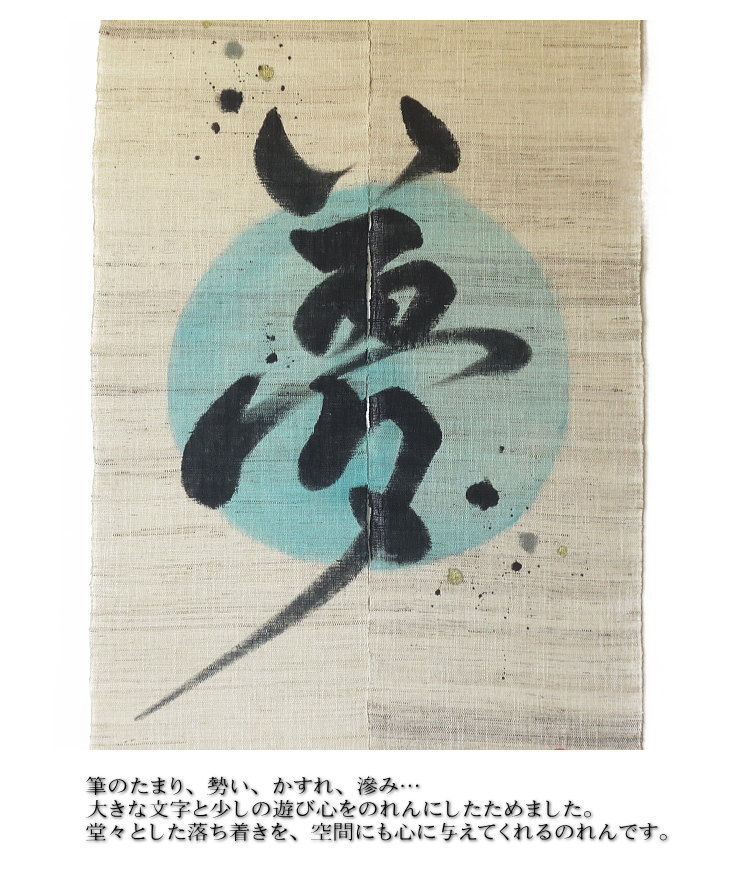 夢
筆のたまり、勢い、かすれ、滲み…
大きな文字と少しの遊び心をのれんにしたためました。
堂々とした落ち着きを、空間にも心に与えてくれるのれんです。